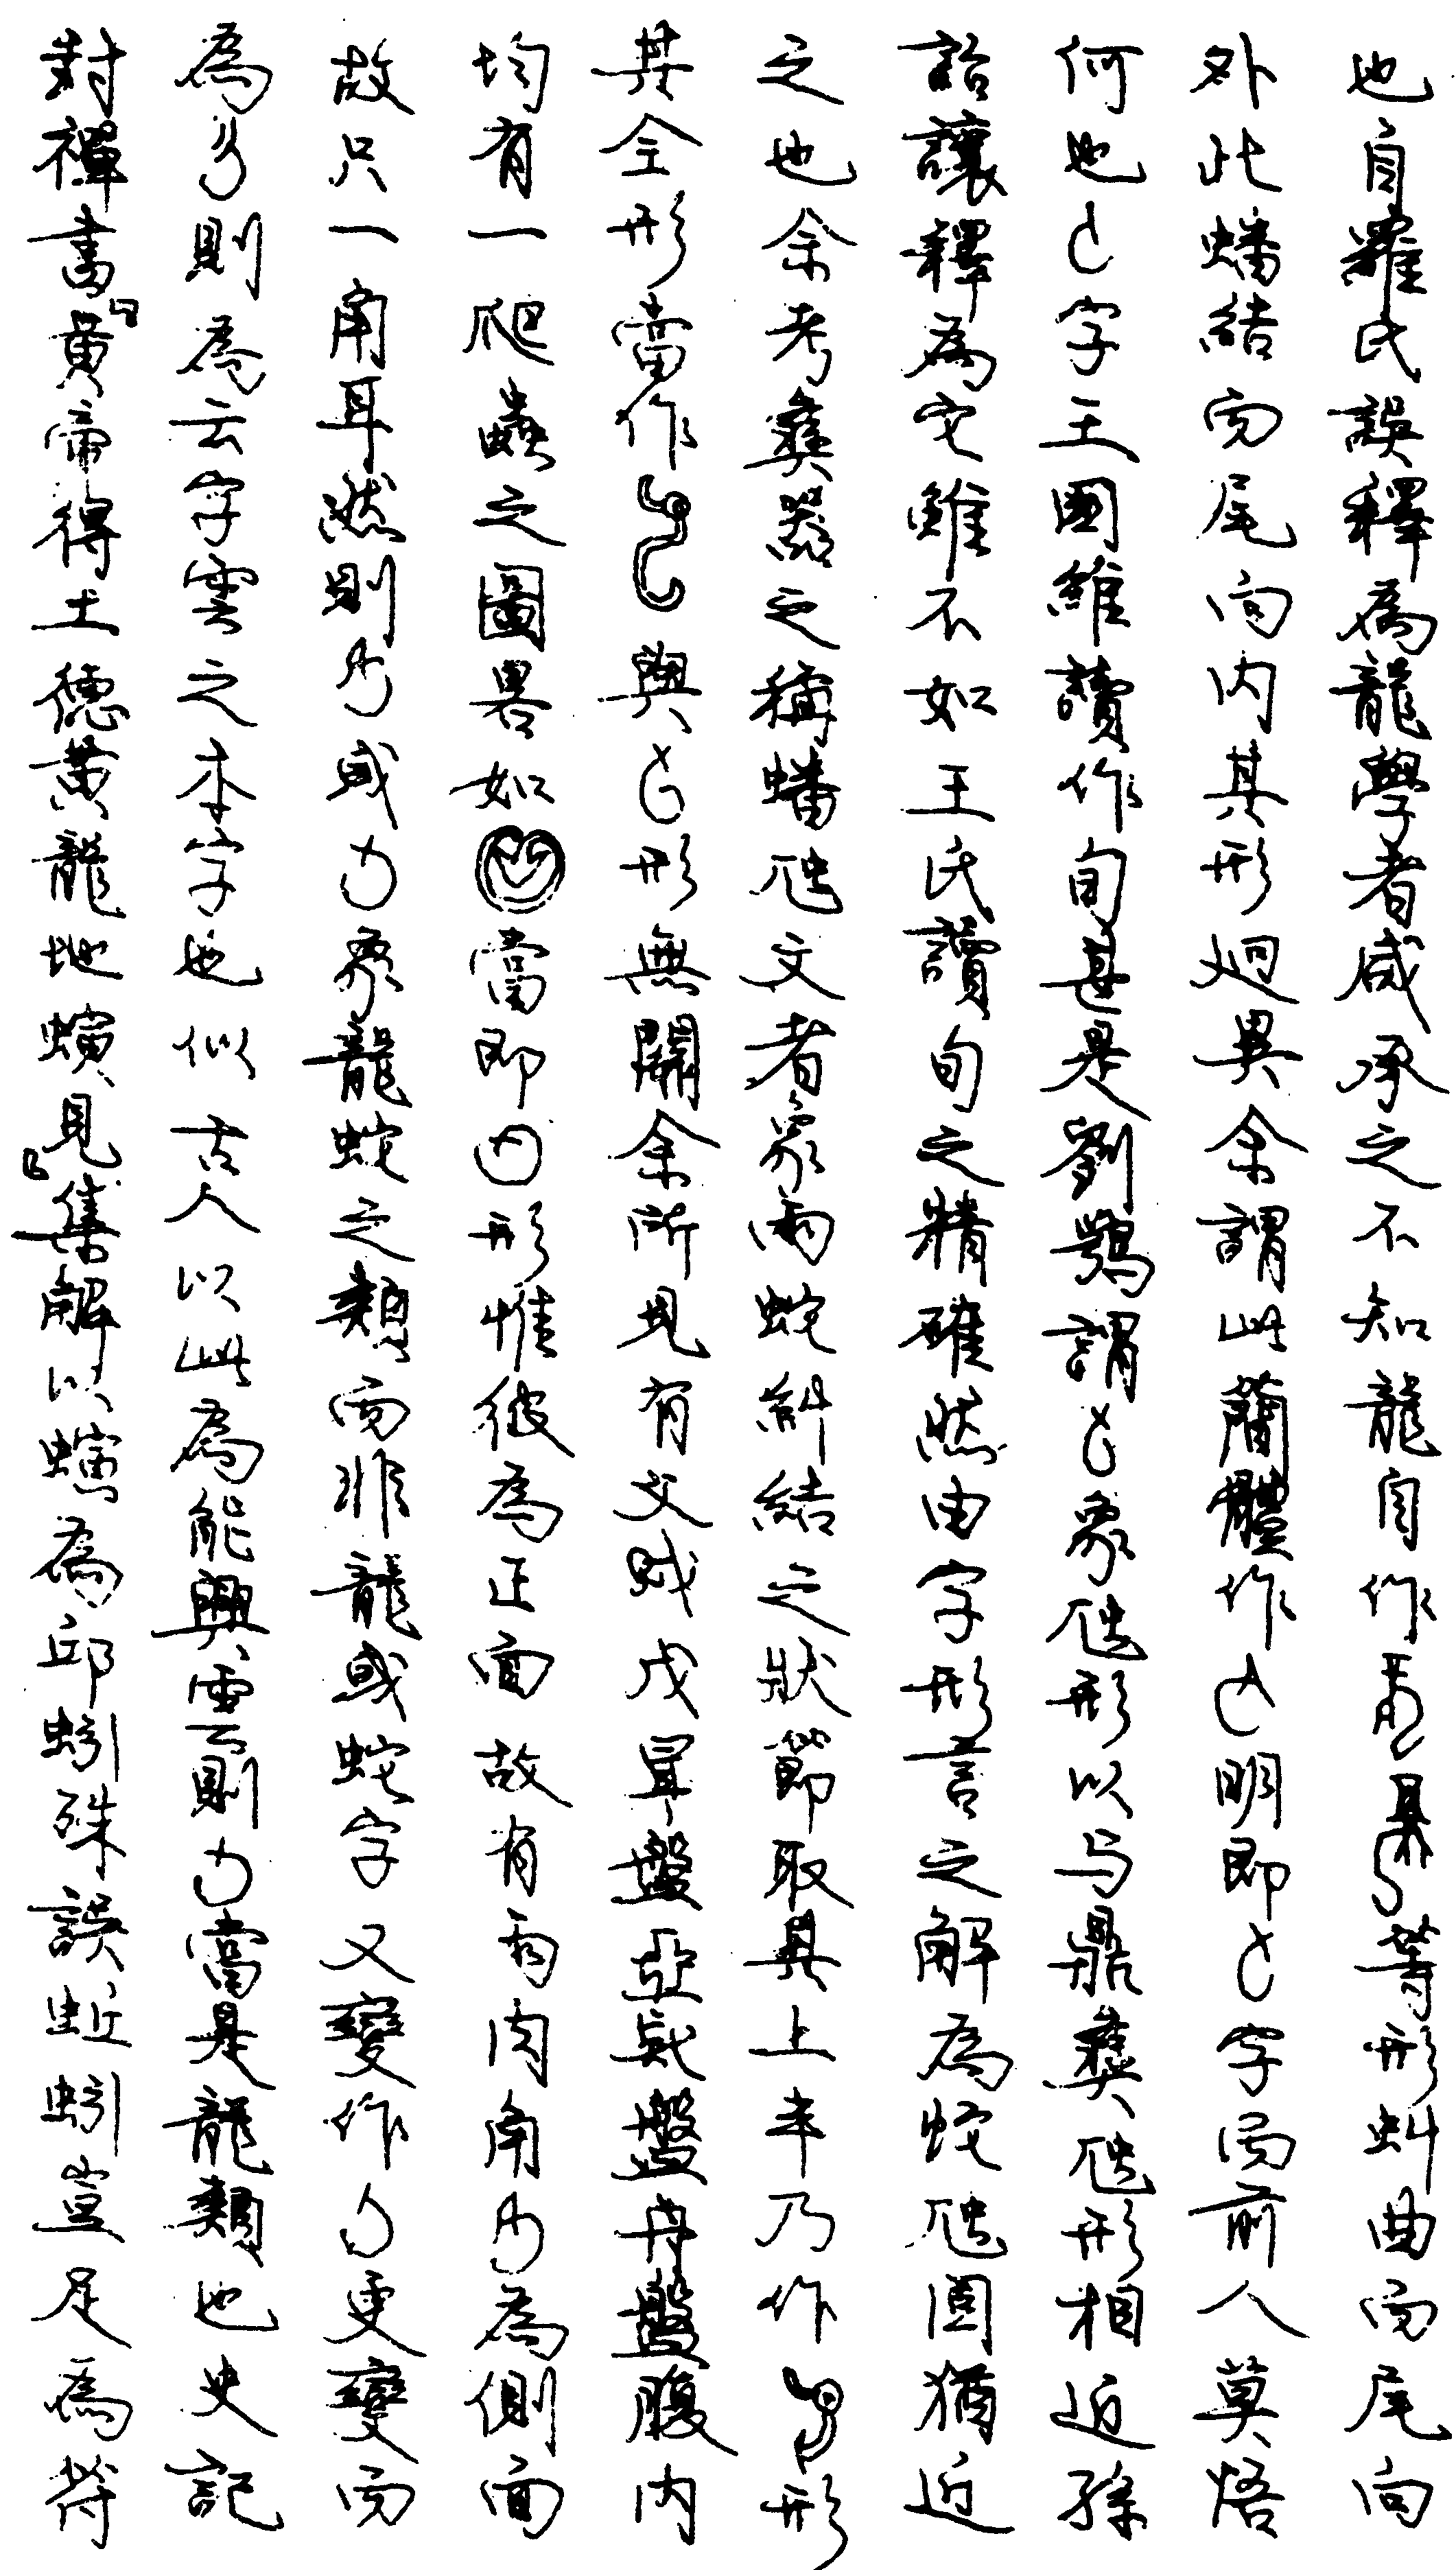 也自羅氏誤釋為龍學者咸承之不知龍自作等形虯曲而尾向
外此蟠結而尾向內其形迥異余謂此蘭體作明即字而前人莫悟
何也字王國維讀作旬甚是劉鶚謂象虺形以与鼎彝虺形相近孫
詒讓釋為它雖不如王氏讀旬之精確然由字形言之解為蛇虺固猶近
之也余考彝器之稱蟠虺文者象兩蛇糾結之狀節取其上半乃作形
其全形當作與形無關余所見有父戊盤亞盤舟盤腹內
均有一爬蟲之圖畧如當即形惟彼為正面故有兩肉角為側面
故只一角耳然則或象龍蛇之類而非龍或蛇字又變作更變而
為則為云字雲之本字也似古人以此為能興雲則當是龍類也史記
封禪書黃帝得土德黃龍地螾見集解以螾為邱蚓殊誤蚯蚓豈足為符